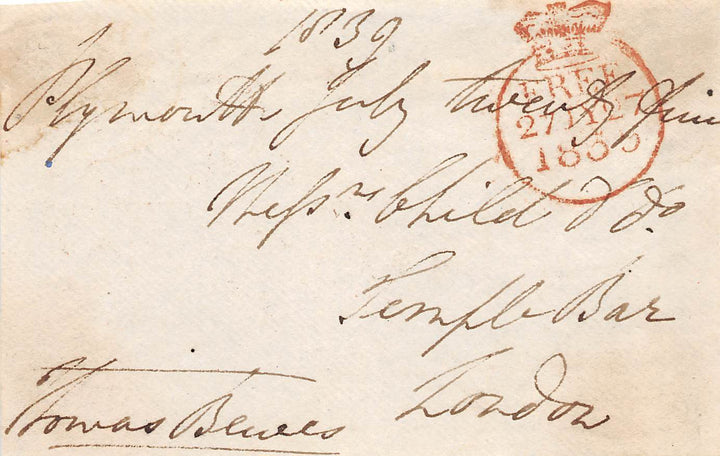 1835
Plymouth July twenty five
Messrs. Child & Co.
Temple Bar
London
Thomas Bewes
FREE
27 JY 27
1835